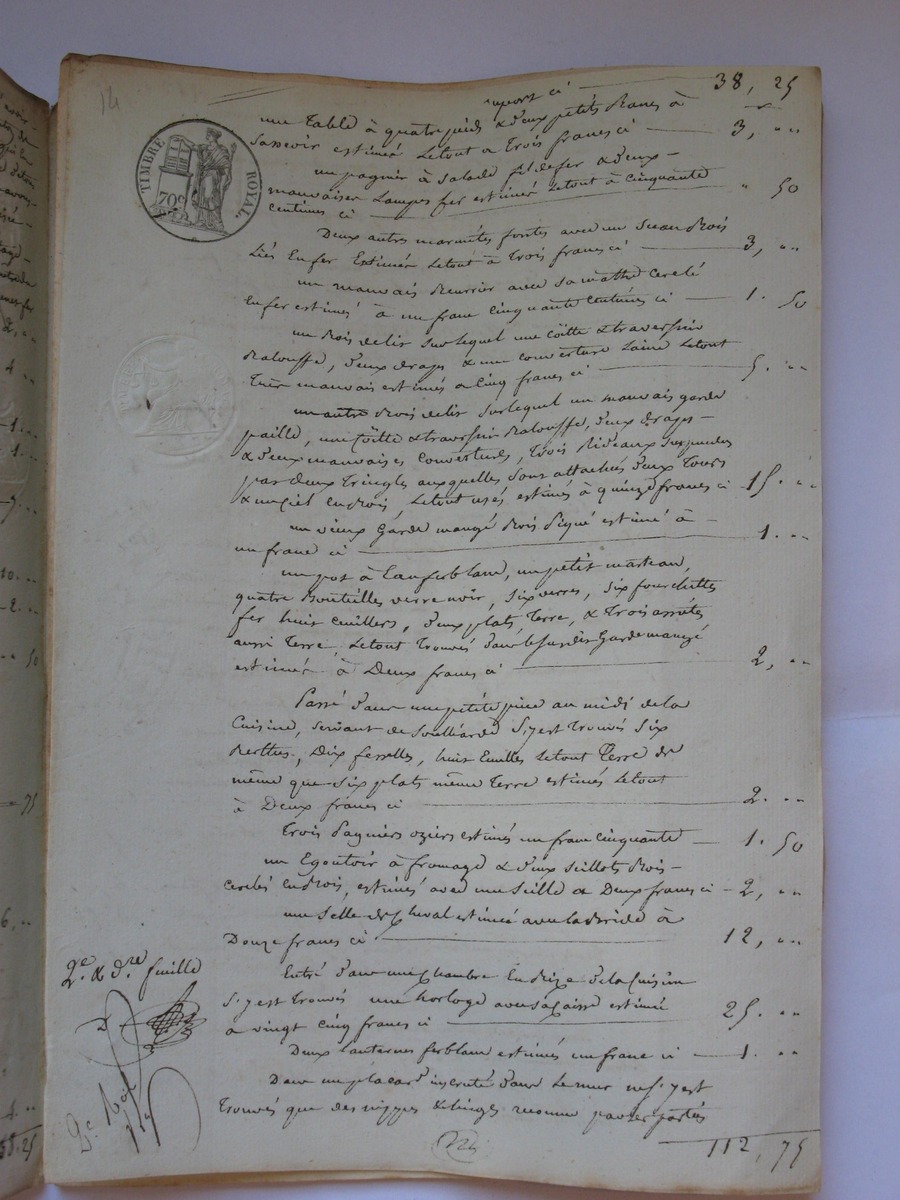 14
report ci 38, 25
TIMBRE ROYAL
70c
une Table à quatre pieds & deux petits Bancs à
Sasseoir estimés Le tout a Trois francs ci 3, ..
un pagnier à salade fil de fer a deux
mauvaises Lampes fer estimés Le tout à Cinquante
Centimes ci .. 50
Deux autres marmites fontes avec un Seau Bois
Liés En fer Estimés Le tout à Trois francs ci 3, ..
un mauvais Beurrier avec sa cerclé
En fer estimés à un franc Cinquante Centimes ci 1. 50
un Bois de lit sur lequel une Coitte & traversin
Balouffe, deux draps & une couverture Laine Le tout
Très mauvais estimés a Cinq francs ci 5. ..
un autre Bois de lit sur lequel un mauvais garde
paille, une Coitte & traversin Balouffe, deux draps
& deux mauvaises Couvertures, Trois Rideaux suspendus
par deux Tringles auxquelles Sont attachées deux Tours
& un Ciel en Bois, Le tout usés estimés à quinze francs ci 15. ..
un vieux Garde mangé Bois Piqué estimé à
un franc ci 1. ..
un pot à Eau ferblanc, un petit marteau,
quatre Bouteilles verre noir, six verres, six fourchettes
fer huit Ceuillers, deux plats Terre, & Trois assietes
aussi Terre, Le tout Trouvés dans le susdit Garde mangé
estimés à Deux francs ci 2, ..
Passé dans une petite pièce au midi de la
Cuisine, servant de Souillarde S'y est Trouvés Six
Berthes, Dix fesselles, huit Le tout Terre de
même que Six plats même Terre estimés Le tout
à Deux francs ci 2. ..
Trois Pagniers oziers estimés un franc Cinquante 1. 50
un Egoutoir à fromage & deux Seillots Bois
Cerclés en Bois, estimés avec une Seille a Deux francs ci 2, ..
une Selle de Cheval estimée avec la Bride à
Douze francs ci 12, ..
Entré dans une Chambre En Bize de la Cuisine
S'y est Trouvés une horloge avec sa Caisse estimée
a vingt cinq francs ci 25. ..
Deux Lanternes ferblanc estimés un franc ci 1. ..
Dans un placard incruté dans Le mur ne s'y est
Trouvés que des nippes & Linges reconnu pour etre portés
112, 75
2e & dre feuille
(224)